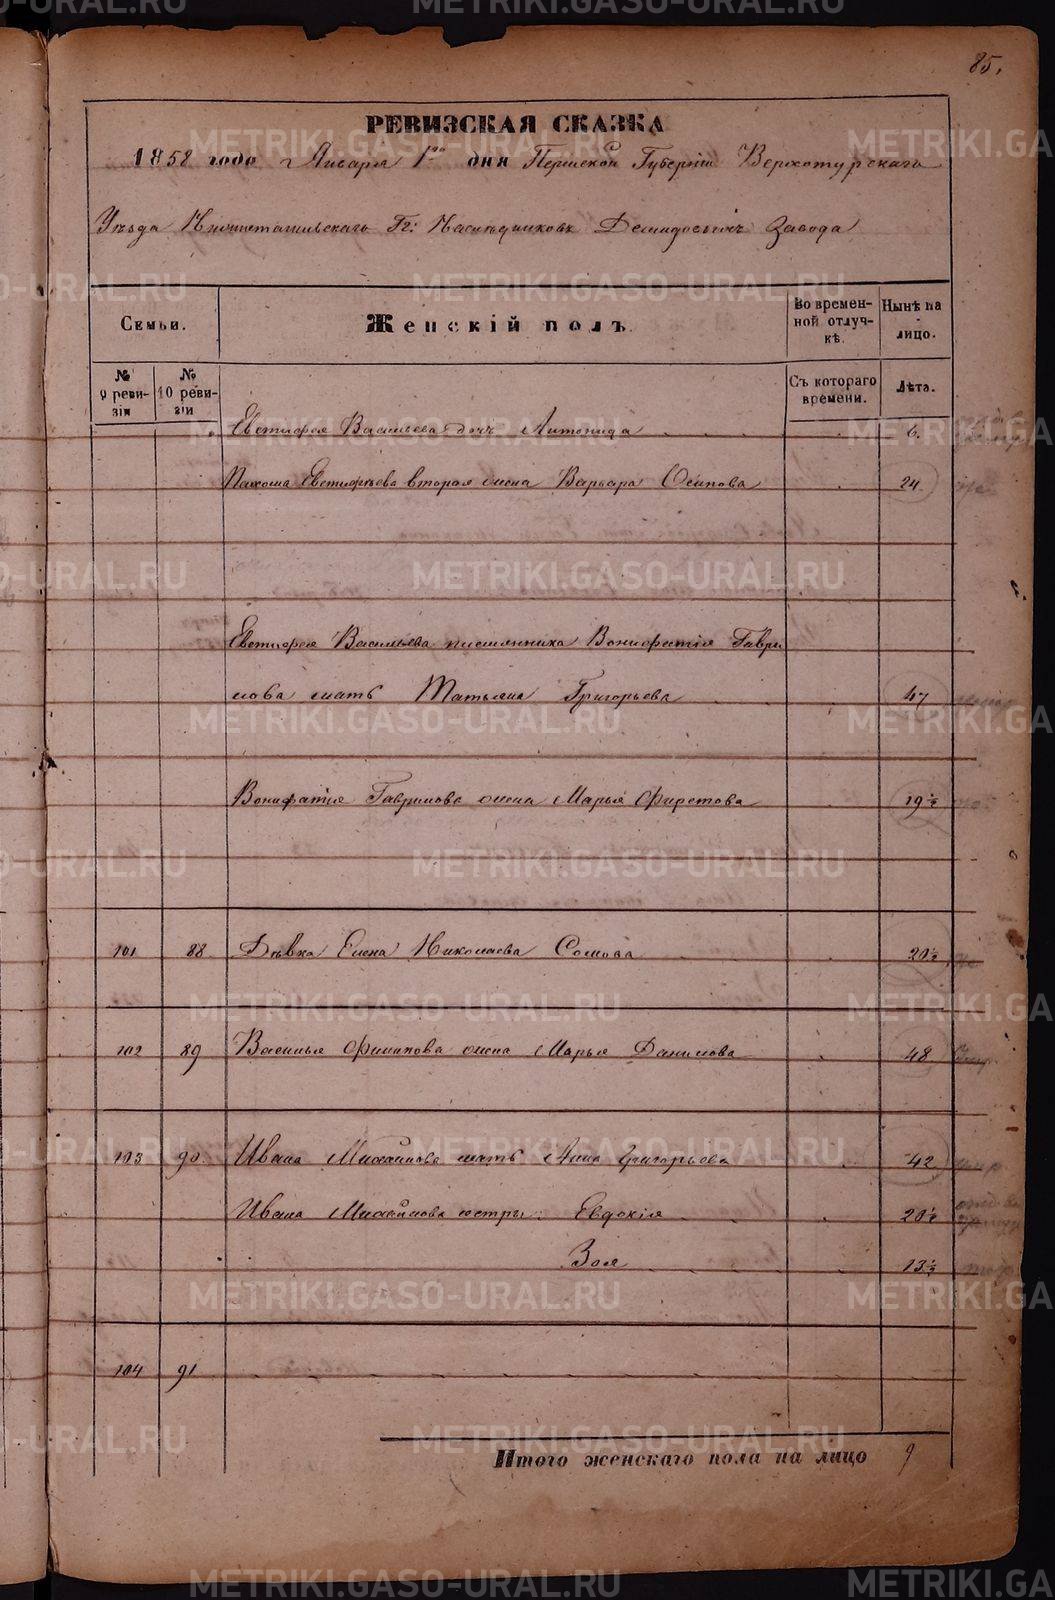 85.
РЕВИЗСКАЯ СКАЗКА
1858 года Января 1го дня Пермской Губерніи Верхотурскаго
Уѣзда Нижнетагильскаго Гг: Наслѣдниковъ Демидовыхъ Завода
Семьи.
Женскій полъ.
Во временной отлучкѣ.
Нынѣ на лицо.
№ 9 ревизіи
№ 10 ревизіи
Съ котораго времени.
Лѣта.
Евтифея Васильева дочь 6.
Пахома Евтифѣева вторая жена Варвара Осипова 24
Евтифея Васильева племянника Вонифатія Гаври
лова мать Татьяна Григорьева 47
Вонифатія Гаврилова жена Марья 19½
101 88 Дѣвка Елена Николаева Сомова 20½
102 89 Василья Филипова жена Марья Данилова 48
103 90 Ивана Михайлова мать Анна Григорьева 42
Ивана Михайлова сестры: Евдокія 20½
Зоя 13½
104 91
Итого женскаго пола на лицо 9
METRIKI.GASO-URAL.RU